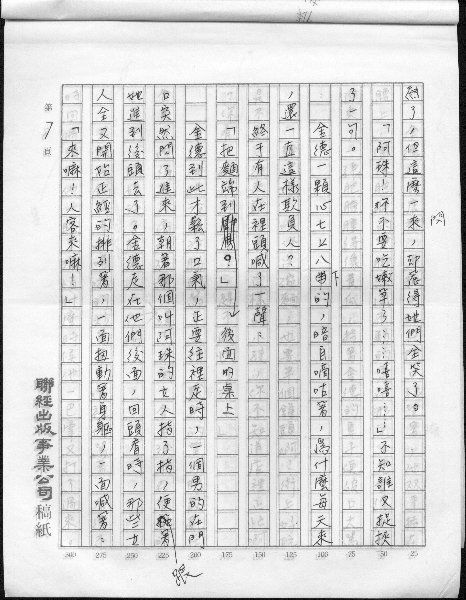 閃
愈了，但這麼一來，卻惹得她們全笑了。
「阿珠！妳不要吃嫩筍了……嘻嘻…」不知誰又捉挾
了一句。
金德一顆心七上八下的，暗自嘀咕著，為什麼每天來
，還一直這樣欺負人？
終于有人在裡頭喊了一聲：
「把麵端到 後面的桌上
？」
金德到此才鬆了口氣，正要往裡走時，一個男的在門
口突然閃了進來，朝著那個叫阿珠的女人指了指，便 著
跟
她進到後頭去了。金德走在他們後面，回頭看時，那些女
人全又開始正經的排列著，一面扭動著身軀，一面喊著：
「來嘛！人客來嘛！」
第7頁
聯經出版事業公司 稿紙
25
50
75
100
125
150
175
200
225
250
275
300